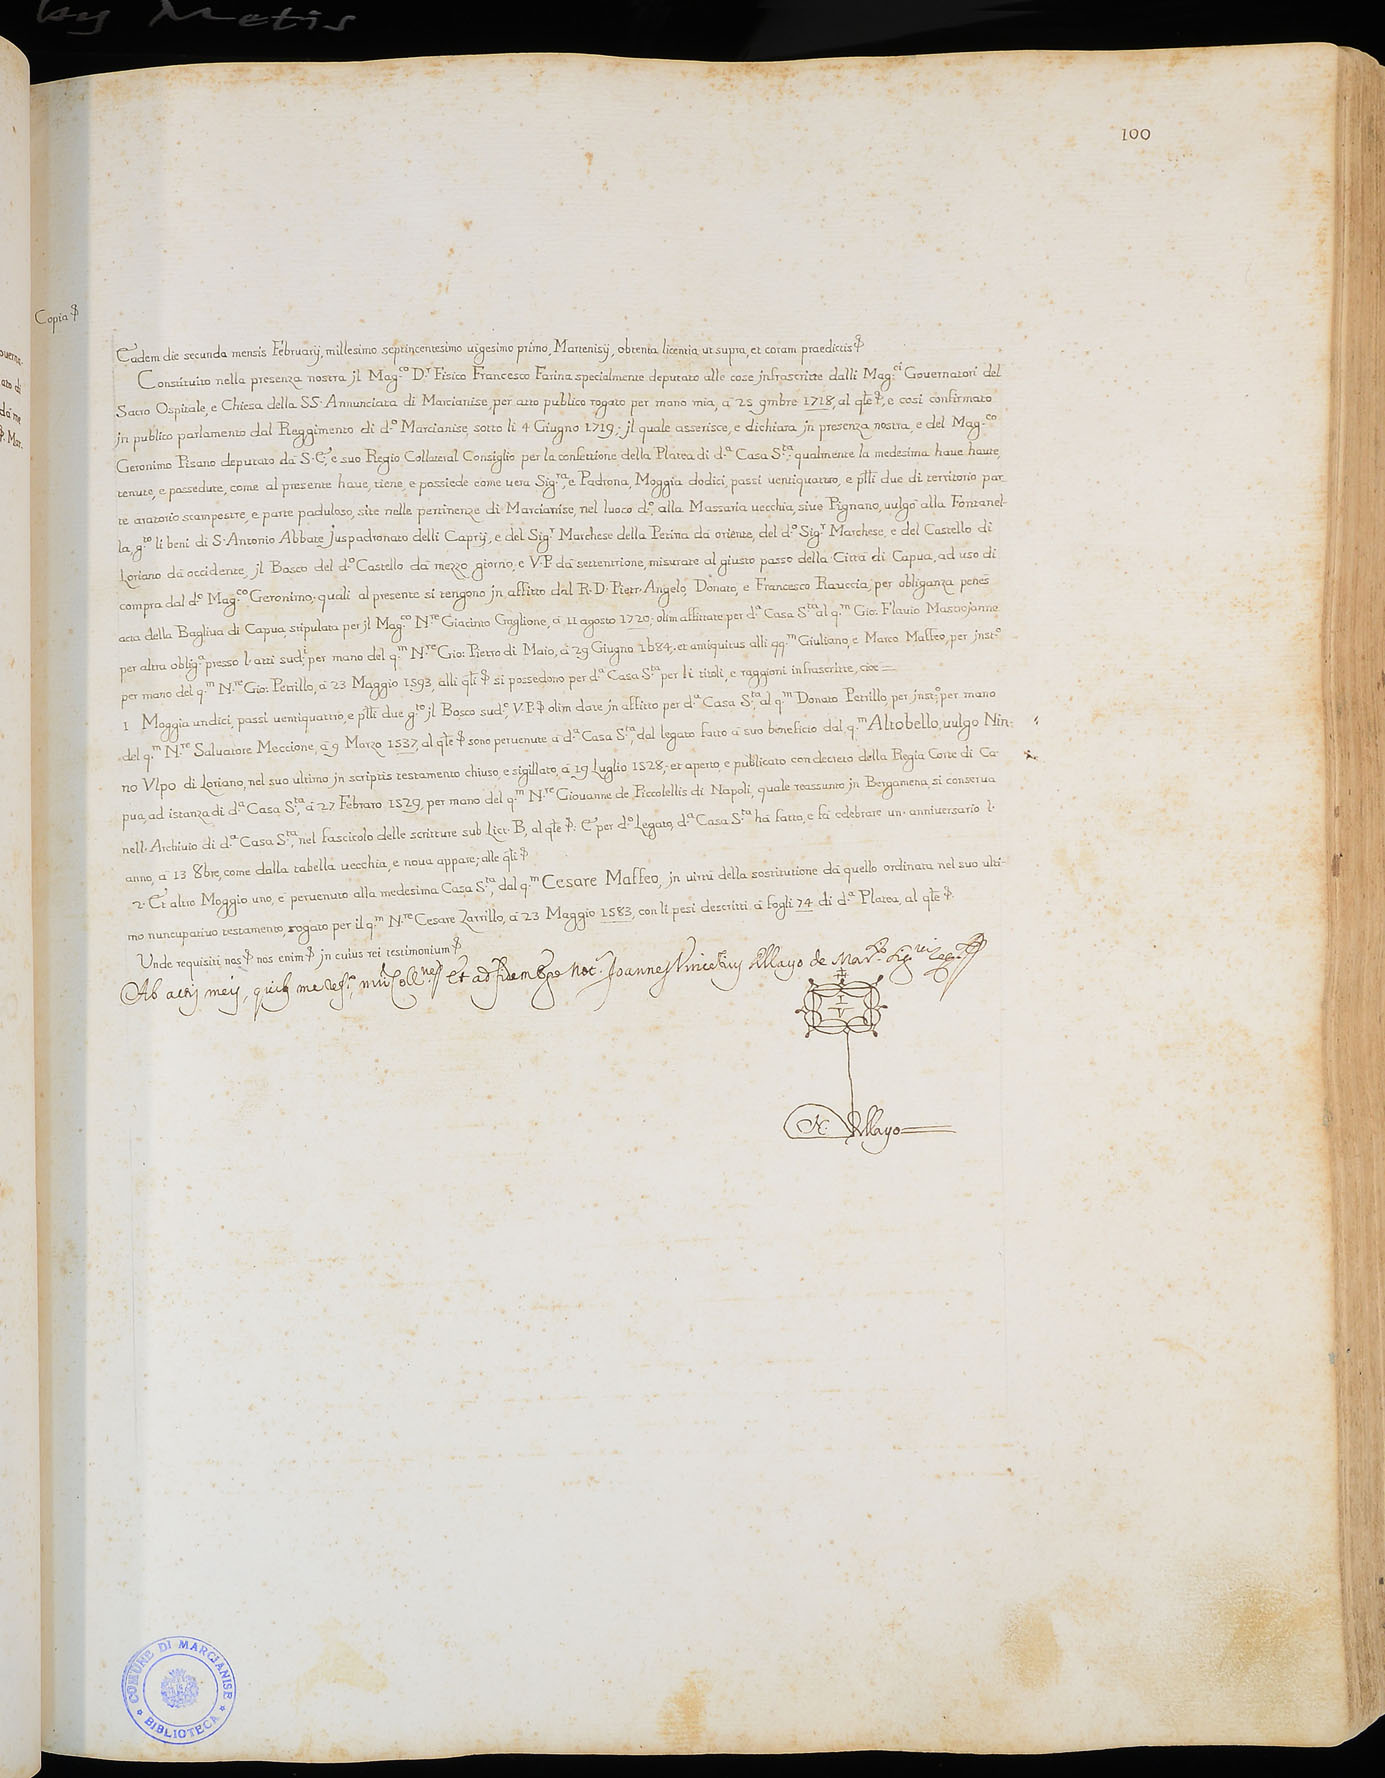 by Metis
100
Copia
Eadem die secunda mensis Februarij, millesimo septincentesimo uigesimo primo, Martenisij, obtenta licentia ut supra, et coram praedictis
Constituito nella presenza nostra jl Mag.co D.r Fisico Francesco Farina specialmente deputato alle cose jnfrascritte dalli Mag.ci Governatori del
Sacro Ospitale, e Chiesa della SS. Annunciata di Marcianise, per atto publico rogato per mano mia, à 25 9mbre 1718, al qle, e così confirmato
jn publico parlamento dal Reggimento di d.o Marcianise, sotto li 4 Giugno 1719; jl quale asserisce, e dichiara jn presenza nostra, e del Mag.co
Geronimo Pisano deputato da S.E, e suo Regio Collateral Consiglio per la confettione della Platea di d.a Casa S.ta qualmente la medesima haue haute,
tenute, e possedute, come al presente haue, tiene, e possiede come uera Sig.ra, e Padrona, Moggia dodici, passi uentiquattro, e ptli due di territorio par
te aratorio scampestre, e parte paduloso, site nelle pertinenze di Marcianise, nel luoco d.o alla Massaria uecchia, siue Pignano, uulgò alla Fontanel-
la, g.to li beni di S. Antonio Abbate Juspadronato delli Caprij, e del Sig.r Marchese della Petina da oriente, del d.o Sig.r Marchese, e del Castello di
Loriano da occidente, jl Bosco del d.o Castello da mezzo giorno, e V.P. da settentrione, misurate al giusto passo della Città di Capua, ad uso di
compra dal d.o Mag.co Geronimo, quali al presente si tengono jn affitto dal R.D. Pietr'Angelo, Donato, e Francesco Rauccia, per obliganza penès
acta della Bagliua di Capua, stipulata per jl Mag.co N.re Giacinto Guglione, à 11 agosto 1720, olim affittate per d.a Casa S.ta al q.m Gio: Flauio Mastroianne
per altra oblig.a presso l'atti sud.i per mano del q.m N.re Gio: Pietro di Maio, à 29 Giugno 1684, et antiquitus alli qq.m Giuliano, e Marco Maffeo, per jnst.o
per mano del q.m N.re Gio: Petrillo, à 23 Maggio 1593, alli qli si possedono per d.a Casa S.ta per li titoli, e raggioni infrascritte, cioè
1 Moggia undici, passi uentiquattro, e ptli due g.to jl Bosco sud.o, V.P. olim date jn affitto per d.a Casa S.ta, al q.m Donato Petrillo, per jnst.o per mano
del q.m N.re Saluatore Meccione, à 9 Marzo 1537, al qle sono peruenute à d.a Casa S.ta, dal legato fatto à suo beneficio dal q.m Altobello, uulgo Nin-
no Vlpo di Loriano, nel suo ultimo jn scriptis testamento chiuso, e sigillato, à 19 Luglio 1528, et aperto, e publicato con decreto della Regia Corte di Ca-
pua, ad istanza di d.a Casa S.ta, à 27 Febraro 1529, per mano del q.m N.re Giouanne de Piccolellis di Napoli, quale reassunto jn Bergamena, si conserua
nell'Archiuio di d.a Casa S.ta, nel fascicolo delle scritture sub Lict. B, al qle. E per d.o Legato, d.a Casa S.ta ha fatto, e fà celebrare un'anniversario l'
anno, à 13 8bre, come dalla tabella uecchia, e noua appare; alle qli
2. Et altro Moggio uno, è peruenuto alla medesima Casa S.ta, dal q.m Cesare Maffeo, jn uirtù della sostitutione da quello ordinata nel suo ulti-
mo nuncupatiuo testamento, rogato per il q.m N.re Cesare Zarrillo, à 23 Maggio 1583, con li pesi descritti à fogli 74 di d.a Platea, al qle
Unde requisiti nos nos enim jn cuius rei testimonium
Ab actis meis, et ad fidem ego Not.s Joannes Vincentius Allayo de
I
V
N. Allayo
COMUNE DI MARCIANISE
BIBLIOTECA